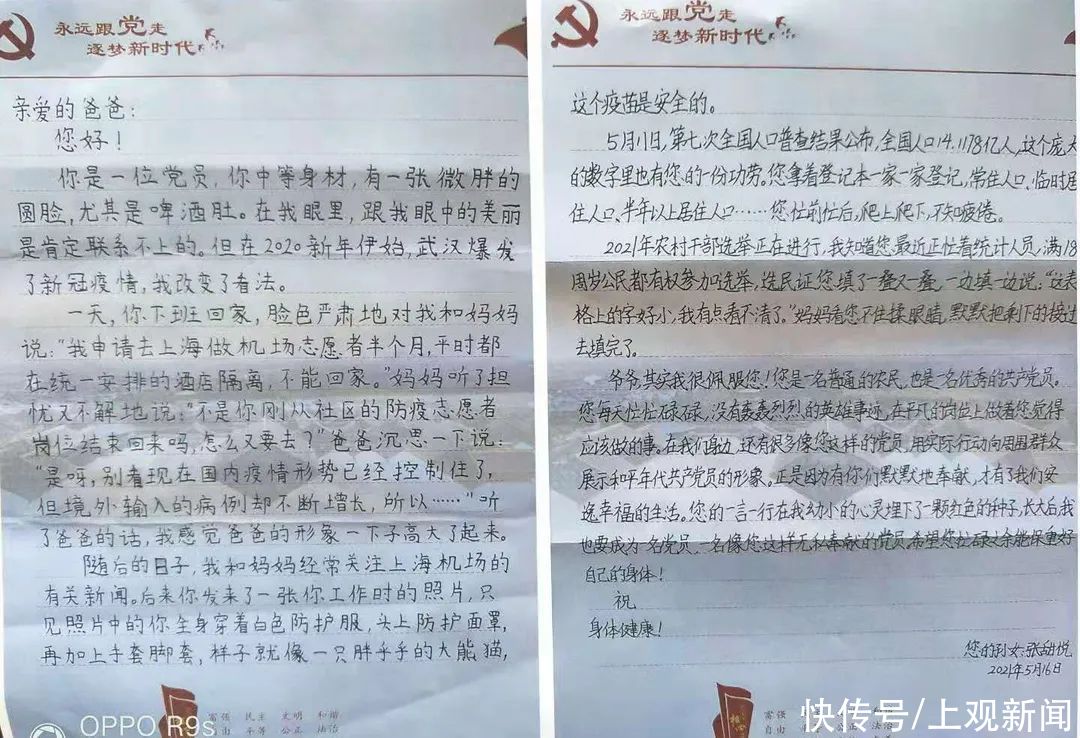 永远跟党走
逐梦新时代
亲爱的爸爸:
您好!
你是一位党员,你中等身材,有一张微胖的
圆脸,尤其是啤酒肚。在我眼里,跟我眼中的美丽
是肯定联系不上的。但在2020新年伊始,武汉爆发
了新冠疫情,我改变了看法。
一天,你下班回家,脸色严肃地对我和妈妈
说:"我申请去上海做机场志愿者半个月,平时都
在统一安排的酒店隔离,不能回家。"妈妈听了担
忧又不解地说:"不是你刚从社区的防疫志愿者
岗位结束回来吗,怎么又要去?"爸爸沉思一下说:
"是呀,别看现在国内疫情形势已经控制住了,
但境外输入的病例却不断增长,所以……"听
了爸爸的话,我感觉爸爸的形象一下子高大了起来。
随后的日子,我和妈妈经常关注上海机场的
有关新闻。后来你发来了一张你工作时的照片,只
见照片中的你全身穿着白色防护服,头上防护面罩,
再加上手套脚套,样子就像一只胖乎乎的大熊猫,
富强 民主 文明 和谐
由 平等 公正 法治
OPPO R9s
永远跟党走
逐梦新时代
这个疫苗是安全的。
5月11日,第七次全国人口普查结果公布,全国人口14.1178亿人,这个庞大
的数字里也有您的一份功劳。您拿着登记本一家一家登记,常住人口、临时居
住人口、半年以上居住人口……您忙前忙后,爬上爬下,不知疲倦。
2021年农村干部选举正在进行,我知道您最近正忙着统计人员,满18
周岁公民都有权参加选举,选民证您填了一叠又一叠,一边填一边说:"这表
格上的字好小,我有点看不清了。"妈妈看您不住揉眼睛,默默把剩下的接过
去填完了。
爷爷,其实我很佩服您!您是一名普通的农民,也是一名优秀的共产党员。
您每天忙忙碌碌,没有轰轰烈烈的英雄事迹,在平凡的岗位上做着您觉得
应该做的事。在我们身边,还有很多像您这样的党员,用实际行动向周围群众
展示和平年代共产党员的形象。正是因为有你们默默地奉献,才有了我们安
逸幸福的生活。您的一言一行在我幼小的心灵埋下了一颗红色的种子,长大后我
也要成为一名党员,一名像您这样无私奉献的党员。希望您忙碌之余能保重好
自己的身体!
祝
身体健康!
您的孙女:张甜悦
2021年5月16日
富强
自由
快传号/上观新闻